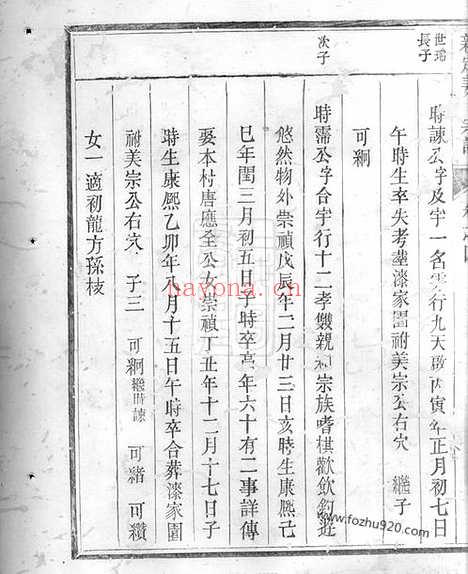 世瑤
長子
時諫公字及宇一名雲行九天啟丙寅年正月初七日
午時生卒失考塟漆家園祔美宗公右穴 繼子
可綱
次子
時霈公字合宇行十二孝雙親和宗族嗜棋歡飲釣遊
悠然物外崇禎戊辰年二月廿三日亥時生康熙己
巳年閏三月初五日子時卒高年六十有二事詳傳
娶本村唐應全公女崇禎丁丑年十二月十七日子
時生康熙乙卯年八月十五日午時卒合葬漆家園
祔美宗公右穴 子三 可綱繼時諫 可緒 可纘
女一適初龍方孫枝
nayona.cn
www.fozhu920.com